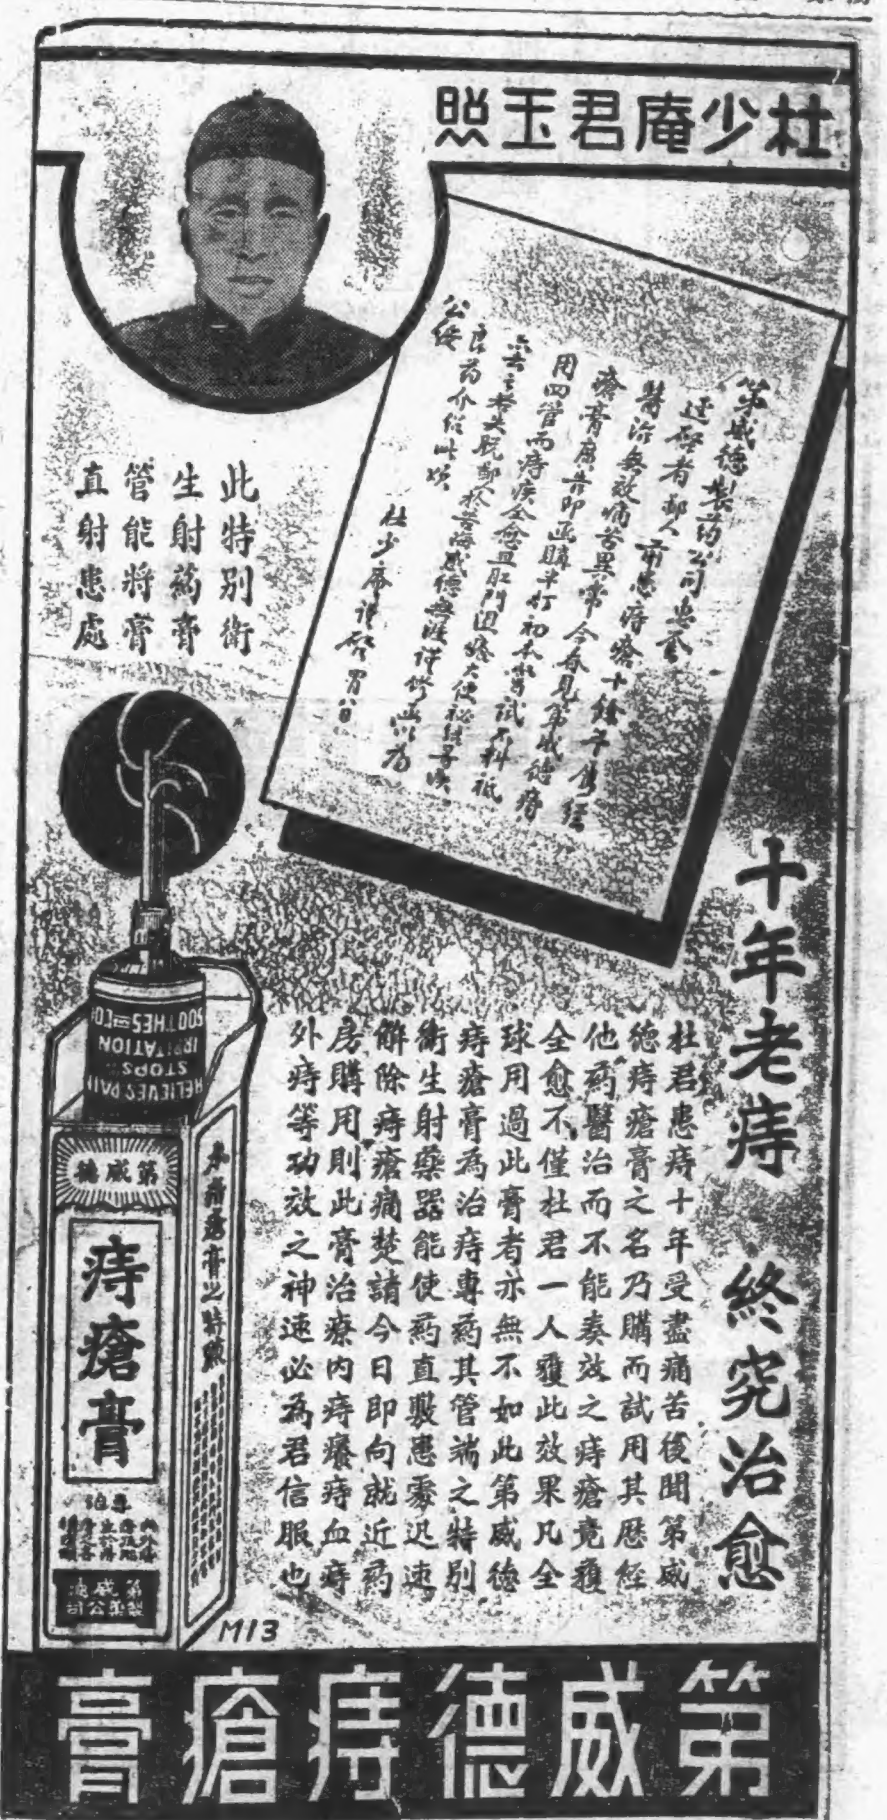 杜少庵君玉照
第威德製药公司惠鉴
逕啓者鄙人前患痔瘡十餘年屢經
醫治無效痛苦異常今春見第威德痔
瘡膏廣告即函購半打初不過嘗試不料祇
用四管而痔疾全愈且肛門
良药介紹此頌
公綏
杜少庵謹啓
此特別衛
生射葯膏
管能將膏
直射患處
十年老痔 終究治愈
杜君患痔十年受盡痛苦後聞第威
德痔瘡膏之名乃購而試用其歷經
他葯醫治而不能奏效之痔瘡竟獲
全愈不僅杜君一人獲此效果凡全
球用過此膏者亦無不如此第威德
痔瘡膏為治痔專葯其管端之特別
衛生射藥器能使葯直敷患處迅速
解除痔瘡痛楚請今日即向就近葯
房購用則此膏治療内痔癢痔血痔
外痔等功效之神速必為君信服也
RELIEVES PAIN
STOPS
IRRITATION
SOOTHES
第威德
痔瘡膏
專治
第威德
製藥公司
本痔瘡膏之特點
M13
第威德痔瘡膏